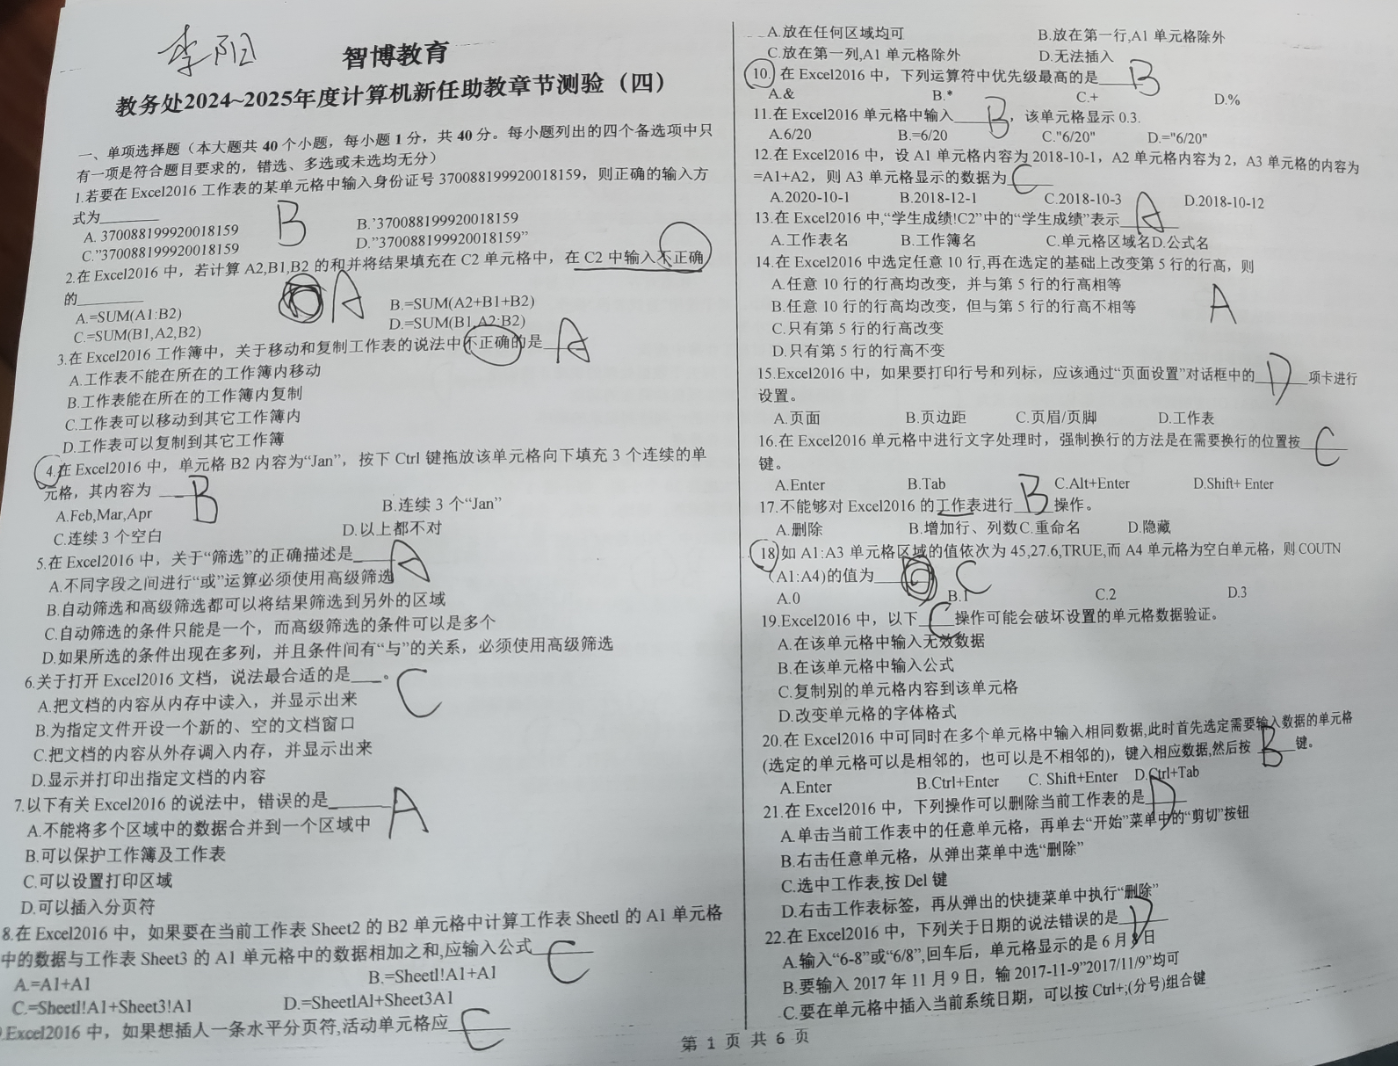 李阳
智博教育
教务处2024~2025年度计算机新任助教章节测验（四）
一、单项选择题（本大题共 40 个小题，每小题 1 分，共 40 分。每小题列出的四个备选项中只
有一项是符合题目要求的，错选、多选或未选均无分）
1.若要在 Excel2016 工作表的某单元格中输入身份证号 370088199920018159，则正确的输入方
式为________ B
A. 370088199920018159 B.’370088199920018159
C.”370088199920018159 D.”370088199920018159”
2.在 Excel2016 中，若计算 A2,B1,B2 的和并将结果填充在 C2 单元格中，在 C2 中输入不正确
的________ A
A.=SUM(A1:B2) B.=SUM(A2+B1+B2)
C.=SUM(B1,A2,B2) D.=SUM(B1,A2:B2)
3.在 Excel2016 工作簿中，关于移动和复制工作表的说法中不正确的是____ A
A.工作表不能在所在的工作簿内移动
B.工作表能在所在的工作簿内复制
C.工作表可以移动到其它工作簿内
D.工作表可以复制到其它工作簿
4.在 Excel2016 中，单元格 B2 内容为“Jan”，按下 Ctrl 键拖放该单元格向下填充 3 个连续的单
元格，其内容为 ____ B
A.Feb,Mar,Apr B.连续 3 个“Jan”
C.连续 3 个空白 D.以上都不对
5.在 Excel2016 中，关于“筛选”的正确描述是____ A
A.不同字段之间进行“或”运算必须使用高级筛选
B.自动筛选和高级筛选都可以将结果筛选到另外的区域
C.自动筛选的条件只能是一个，而高级筛选的条件可以是多个
D.如果所选的条件出现在多列，并且条件间有“与”的关系，必须使用高级筛选
6.关于打开 Excel2016 文档，说法最合适的是___。 C
A.把文档的内容从内存中读入，并显示出来
B.为指定文件开设一个新的、空的文档窗口
C.把文档的内容从外存调入内存，并显示出来
D.显示并打印出指定文档的内容
7.以下有关 Excel2016 的说法中，错误的是______ A
A.不能将多个区域中的数据合并到一个区域中
B.可以保护工作簿及工作表
C.可以设置打印区域
D.可以插入分页符
8.在 Excel2016 中，如果要在当前工作表 Sheet2 的 B2 单元格中计算工作表 Sheetl 的 A1 单元格
中的数据与工作表 Sheet3 的 A1 单元格中的数据相加之和,应输入公式______ C
A.=A1+A1 B.=Sheetl!A1+A1
C.=Sheetl!A1+Sheet3!A1 D.=SheetlAl+Sheet3A1
.Excel2016 中，如果想插人一条水平分页符,活动单元格应______ C
A.放在任何区域均可 B.放在第一行,A1 单元格除外
C.放在第一列,A1 单元格除外 D.无法插入
10. 在 Excel2016 中，下列运算符中优先级最高的是____ B
A.& B.* C.+ D.%
11.在 Excel2016 单元格中输入____ B ，该单元格显示 0.3.
A.6/20 B.=6/20 C."6/20" D.="6/20"
12.在 Excel2016 中，设 A1 单元格内容为 2018-10-1，A2 单元格内容为 2，A3 单元格的内容为
=A1+A2，则 A3 单元格显示的数据为____ C
A.2020-10-1 B.2018-12-1 C.2018-10-3 D.2018-10-12
13.在 Excel2016 中,“学生成绩!C2”中的“学生成绩”表示____ A
A.工作表名 B.工作簿名 C.单元格区域名D.公式名
14.在 Excel2016 中选定任意 10 行,再在选定的基础上改变第 5 行的行高，则
A.任意 10 行的行高均改变，并与第 5 行的行高相等
B.任意 10 行的行高均改变，但与第 5 行的行高不相等 A
C.只有第 5 行的行高改变
D.只有第 5 行的行高不变
15.Excel2016 中，如果要打印行号和列标，应该通过“页面设置”对话框中的____ D 项卡进行
设置。
A.页面 B.页边距 C.页眉/页脚 D.工作表
16.在 Excel2016 单元格中进行文字处理时，强制换行的方法是在需要换行的位置按____ C
键。
A.Enter B.Tab C.Alt+Enter D.Shift+ Enter
17.不能够对 Excel2016 的工作表进行____ B 操作。
A.删除 B.增加行、列数C.重命名 D.隐藏
18.如 A1:A3 单元格区域的值依次为 45,27.6,TRUE,而 A4 单元格为空白单元格，则 COUTN
（A1:A4)的值为____ C
A.0 B.1 C.2 D.3
19.Excel2016 中，以下____ C 操作可能会破坏设置的单元格数据验证。
A.在该单元格中输入无效数据
B.在该单元格中输入公式
C.复制别的单元格内容到该单元格
D.改变单元格的字体格式
20.在 Excel2016 中可同时在多个单元格中输入相同数据,此时首先选定需要输入数据的单元格
(选定的单元格可以是相邻的，也可以是不相邻的)，键入相应数据,然后按____ B 键。
A.Enter B.Ctrl+Enter C. Shift+Enter D.Ctrl+Tab
21.在 Excel2016 中，下列操作可以删除当前工作表的是____ D
A.单击当前工作表中的任意单元格，再单去“开始”菜单中的“剪切”按钮
B.右击任意单元格，从弹出菜单中选“删除”
C.选中工作表,按 Del 键
D.右击工作表标签，再从弹出的快捷菜单中执行“删除”
22.在 Excel2016 中，下列关于日期的说法错误的是____ D
A.输入“6-8”或“6/8”,回车后，单元格显示的是 6 月 8 日
B.要输入 2017 年 11 月 9 日，输 2017-11-9”2017/11/9”均可
C.要在单元格中插入当前系统日期，可以按 Ctrl+;(分号)组合键
第 1 页 共 6 页